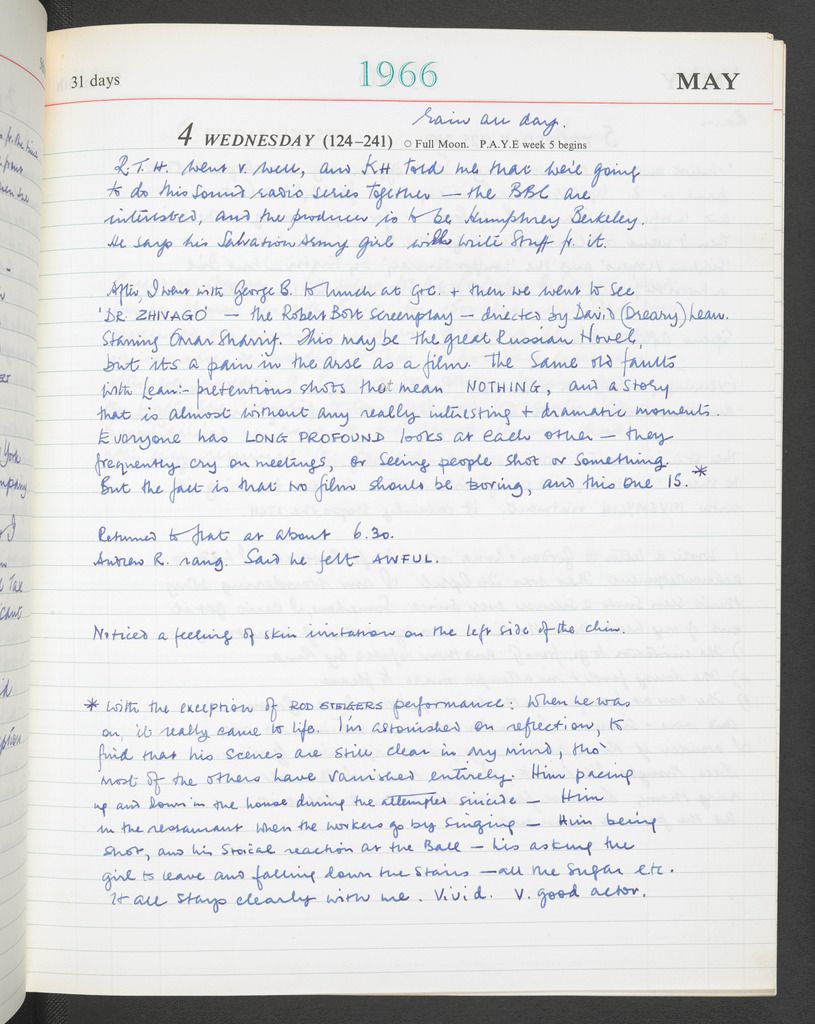 31 days
1966
MAY
rain all day.
4 WEDNESDAY (124–241) ○ Full Moon. P.A.Y.E week 5 begins
R.T.H. went v. well, and KH told me that we're going
to do this sound radio series together — the BBC are
interested, and the producer is to be Humphrey Berkeley.
He says his Salvation Army girl will write stuff for it.
After, I went with George B. to lunch at GtC. + then we went to see
'DR. ZHIVAGO' — the Robert Bolt screenplay — directed by David (Dreary) Lean.
Starring Omar Sharrif. This may be the great Russian Novel,
but its a pain in the arse as a film. The same old faults
with Lean:- pretentious shots that mean NOTHING, and a story
that is almost without any really interesting + dramatic moments.
Everyone has LONG PROFOUND looks at each other — they
frequently cry on meetings, or seeing people shot or something.
But the fact is that no film should be boring, and this one IS. *
Returned to flat at about 6.30.
Andrew R. rang. Said he felt AWFUL.
Noticed a feeling of skin irritation on the left side of the chin.
* With the exception of ROD STEIGERS performance: When he was
on, it really came to life. I'm astonished on reflection, to
find that his scenes are still clear in my mind, tho'
most of the others have vanished entirely. Him pacing
up and down in the house during the attempted suicide — Him
in the restaurant when the workers go by singing — Him being
shot, and his stoical reaction at the Ball — his asking the
girl to leave and falling down the stairs — all the sugar etc.
It all stays clearly with me. Vivid. V. good actor.